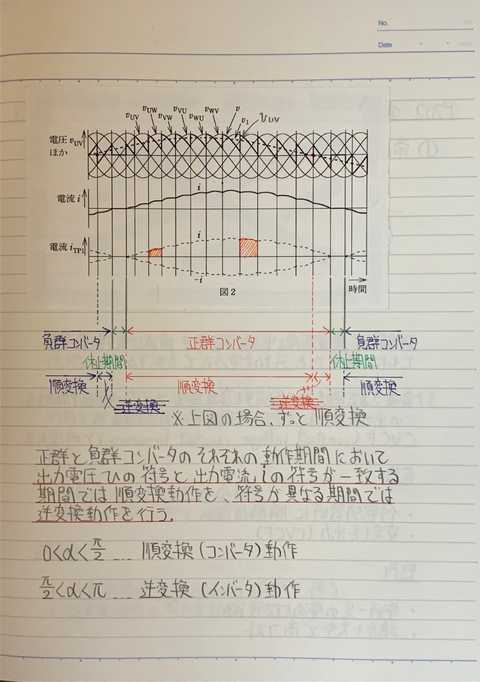 No.
Date
vUV
vUW
vVW
vVU
vWU
vWV
v
v1
電圧 vUV
ほか
電流 i
i
電流 iTP1
i
-i
時間
図2
負群コンバータ
正群コンバータ
負群コンバータ
休止期間
休止期間
順変換
順変換
順変換
逆変換
逆変換
※上図の場合、ずっと順変換
正群と負群コンバータのそれぞれの動作期間において
出力電圧vの符号と、出力電流iの符号が一致する
期間では順変換動作を、符号が異なる期間では
逆変換動作を行う。
0<α<π/2 … 順変換(コンバータ)動作
π/2<α<π … 逆変換(インバータ)動作